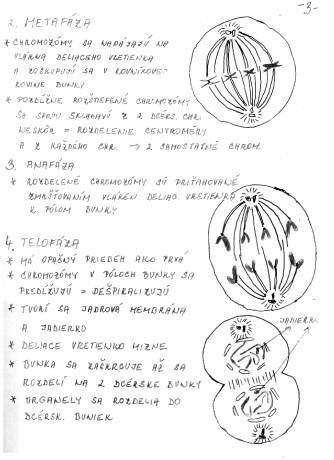 -3-
2. METAFÁZA
* CHROMOZÓMY SA NAPÁJAJÚ NA
VLÁKNA DELIACEHO VRETIENKA
A ZOSKUPUJÚ SA V ROVNÍKOVEJ
ROVINE BUNKY
* POZDĹŽNE ROZŠTEPENÉ CHROMOZÓMY
SA SPRVU SKLADAJÚ Z 2 DCÉRS. CHR.
NESKÔR = ROZDELENIE CENTROMÉRY
A Z KAŽDÉHO CHR. → 2 SAMOSTATNÉ CHROM.
3. ANAFÁZA
* ROZDELENÉ CHROMOZÓMY SÚ PRIŤAHOVANÉ
ZMRŠŤOVANÍM VLÁKEN DELIAC. VRETIENKA
K PÓLOM BUNKY
4. TELOFÁZA
* MÁ OPAČNÝ PRIEBEH AKO PRVÁ
* CHROMOZÓMY V PÓLOCH BUNKY SA
PREDLŽUJÚ = DEŠPIRALIZUJÚ
* TVORÍ SA JADROVÁ MEMBRÁNA
A JADIERKO
JADIERKO
* DELIACE VRETIENKO MIZNE
* BUNKA SA ZAŠKRCUJE AŽ SA
ROZDELÍ NA 2 DCÉRSKE BUNKY
* ORGANELY SA ROZDELIA DO
DCÉRSK. BUNIEK